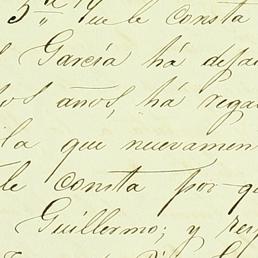 5ª que le consta
García há defa
os años, há rega
la que nuevamen
le consta por q
Guillermo; y res